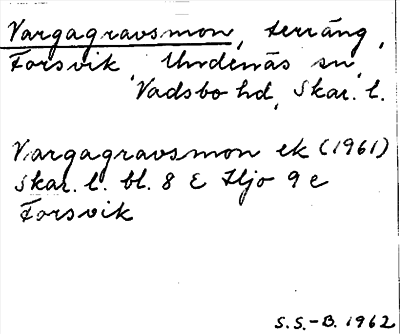 Vargagravsmon, terräng,
Forsvik, Undenäs sn,
Vadsbo hd, Skar. l.
Vargagravsmon ek (1961)
Skar. l. bl. 8 E Hjo 9 e
Forsvik
S.S.-B. 1962